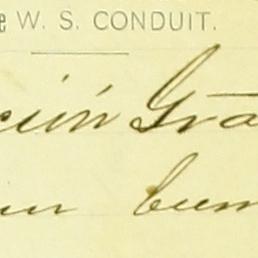 e W. S. CONDUIT.
ción Gra
un bum